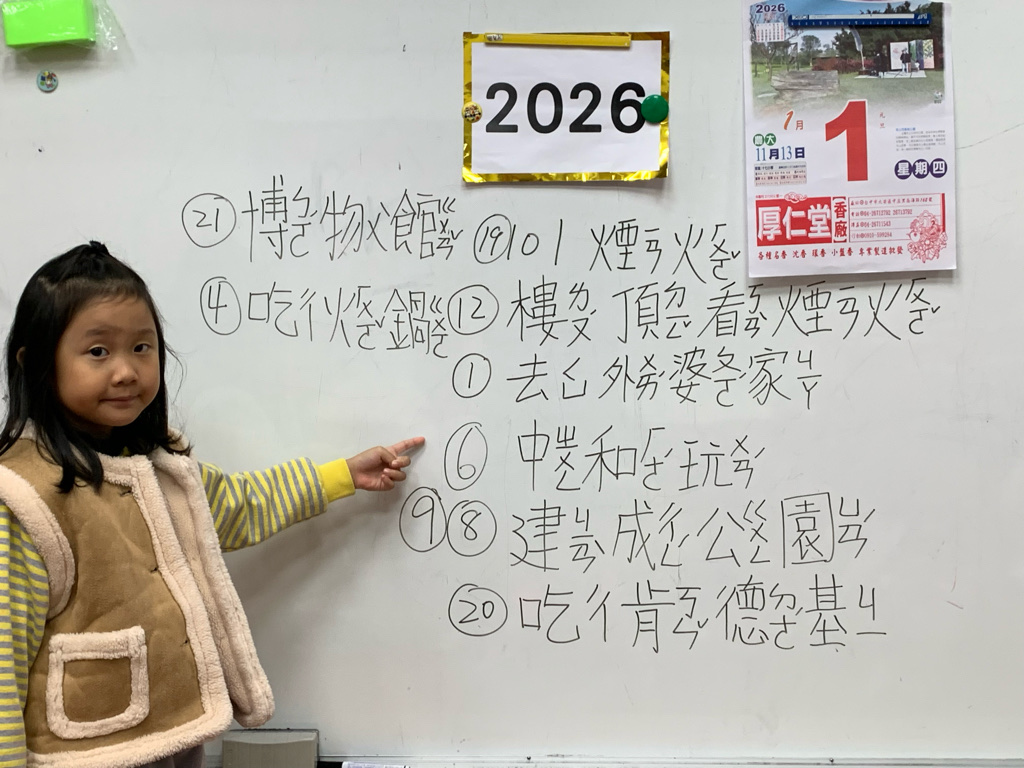 2026
2026
1月
1
元旦
農大
11月13日
星期四
厚仁堂
香廠
各種名香 沈香 環香 小盤香 專業製造批發
㉑博ㄅㄛˊ物ㄨˋ館ㄍㄨㄢˇ
⑲101 煙ㄧㄢ火ㄏㄨㄛˇ
④吃ㄔ火ㄏㄨㄛˇ鍋ㄍㄨㄛ
⑫樓ㄌㄡˊ頂ㄉㄧㄥˇ看ㄎㄢˋ煙ㄧㄢ火ㄏㄨㄛˇ
①去ㄑㄩˋ外ㄨㄞˋ婆ㄆㄛˊ家ㄐㄧㄚ
⑥中ㄓㄨㄥ和ㄏㄜˊ玩ㄨㄢˊ
⑨⑧建ㄐㄧㄢˋ成ㄔㄥˊ公ㄍㄨㄥ園ㄩㄢˊ
⑳吃ㄔ肯ㄎㄣˇ德ㄉㄜˊ基ㄐㄧ